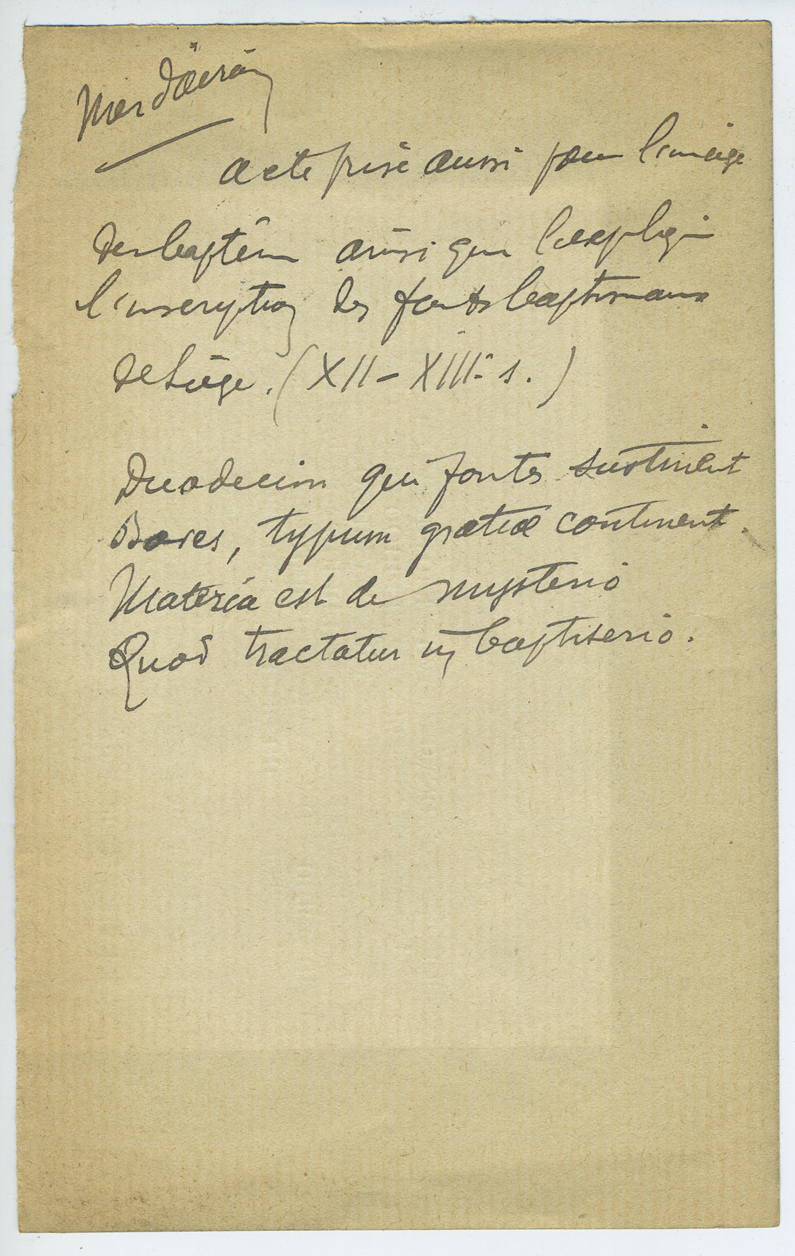 Mer d'airain
a ete prise aussi pour l'image
des baptême ainsi que l'explique
l'inscription des fonts baptismaux
de Liège. (XII – XIIIe s.)
Duodecim qui fontes sustinent
Boves, typum gratiæ continent.
Materia est de mysterio
Quod tractatur in baptiserio.